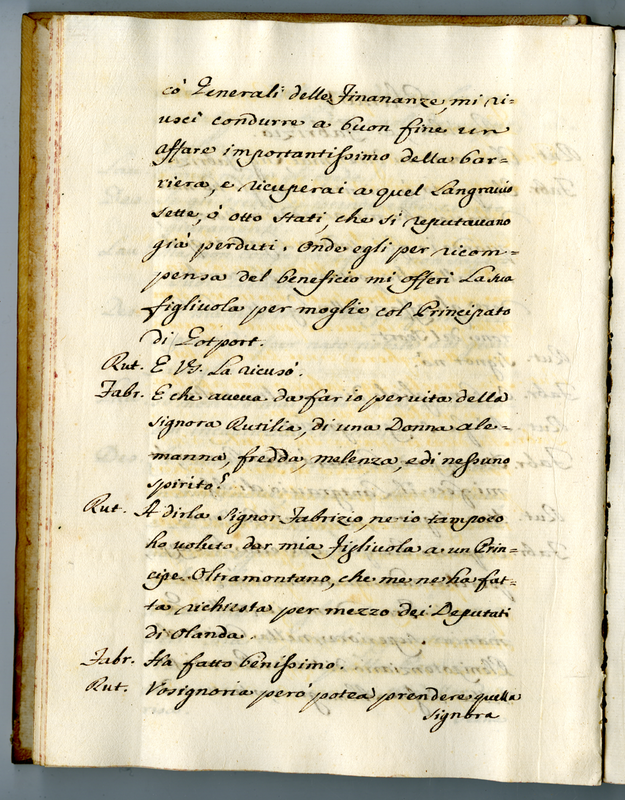 cò Generali delle Finananze, mi ri=
uscì condurre a buon fine un
affare importantissimo della bar=
riera, e ricuperai a quel Langravio
sette, ò otto stati, che si reputavano
già perduti. Onde egli per ricom=
pensa del beneficio mi offerì La sua
figliuola per moglie col Principato
di Lotport.
Rut. E VS. La ricusò.
Fabr. E che aveva da far io per vita della
Signora Rutilia, di una Donna ale=
manna, fredda, melenza, e di nessuno
spirito?
Rut. A dirla Signor Fabrizio, ne io tampoco
ho voluto dar mia Figliuola a un Prin=
cipe Oltramontano, che me ne ha fat=
ta richiesta per mezzo dei Deputati
di Olanda.
Fabr. Ha fatto benissimo.
Rut. Vosignoria però potea prendere quella
Signora